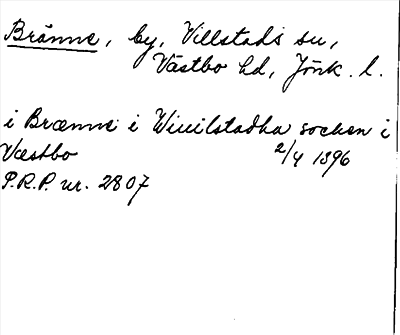 Bränne, by, Villstads sn,
Västbo hd, Jönk. l.
i Brænne i Wiuilstadha sochen i
Væstbo 2/4 1396
P.R.P. nr. 2807